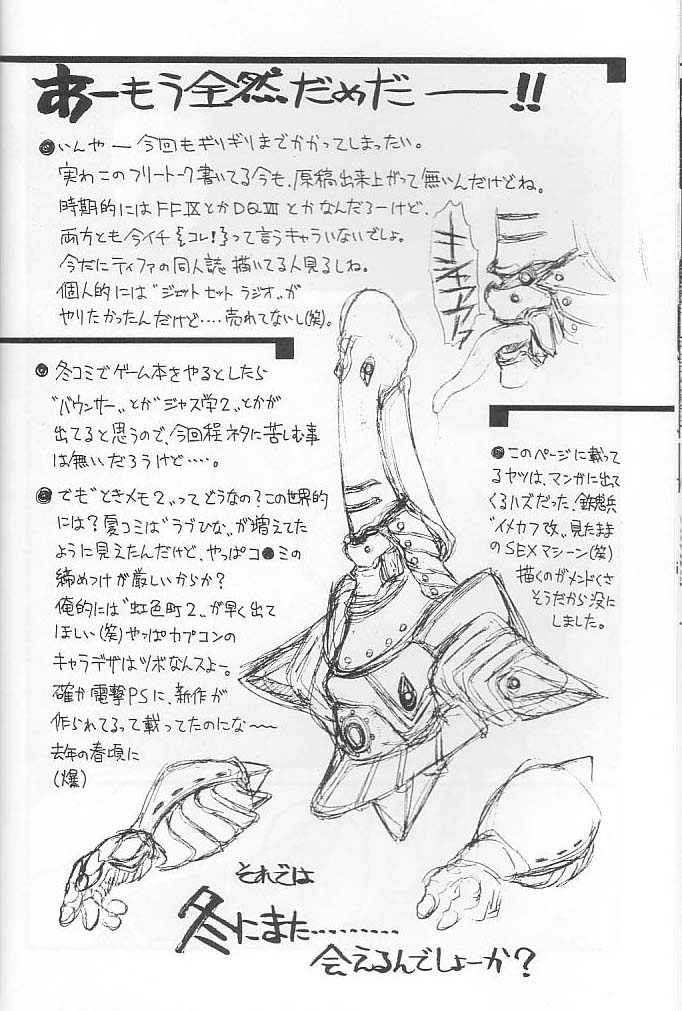 あーもう全然だめだ――!!
●いんやー今回もギリギリまでかかってしまったい。
実わこのフリートーク書いてる今も、原稿出来上がって無いんだけどね。
時期的にはFFⅨとかDQⅦとかなんだろーけど、
両方とも今イチ{コレ!}って言うキャラいないでしょ。
今だにティファの同人誌描いてる人見るしね。
個人的には〝ジェットセットラジオ〟が
やりたかったんだけど‥‥売れてないし(笑)。
●冬コミでゲーム本をやるとしたら
〝バウンサー〟とか〝ジャス学2〟とかが
出てると思うので、今回程ネタに苦しむ事
は無いだろうけど‥‥。
●でも〝ときメモ2〟ってどうなの?この世界的
には?夏コミは〝ラブひな〟が増えてた
ように見えたんだけど、やっぱコ●ミの
締めつけが厳しいからか?
俺的には〝虹色町2〟が早く出て
ほしい(笑)やっぱカプコンの
キャラデザはツボなんスよー。
確か電撃PSに、新作が
作られてるって載ってたのにな〜〜
去年の春頃に
(爆)
●このページに載って
るヤツは、マンガに出て
くるハズだった、鉄騎兵
〝イメカフ改〟見たまま
のSEXマシーン(笑)
描くのガメンドくさ
そうだから没に
しました。
それでは
冬にまた‥‥‥‥‥
会えるんでしょーか?